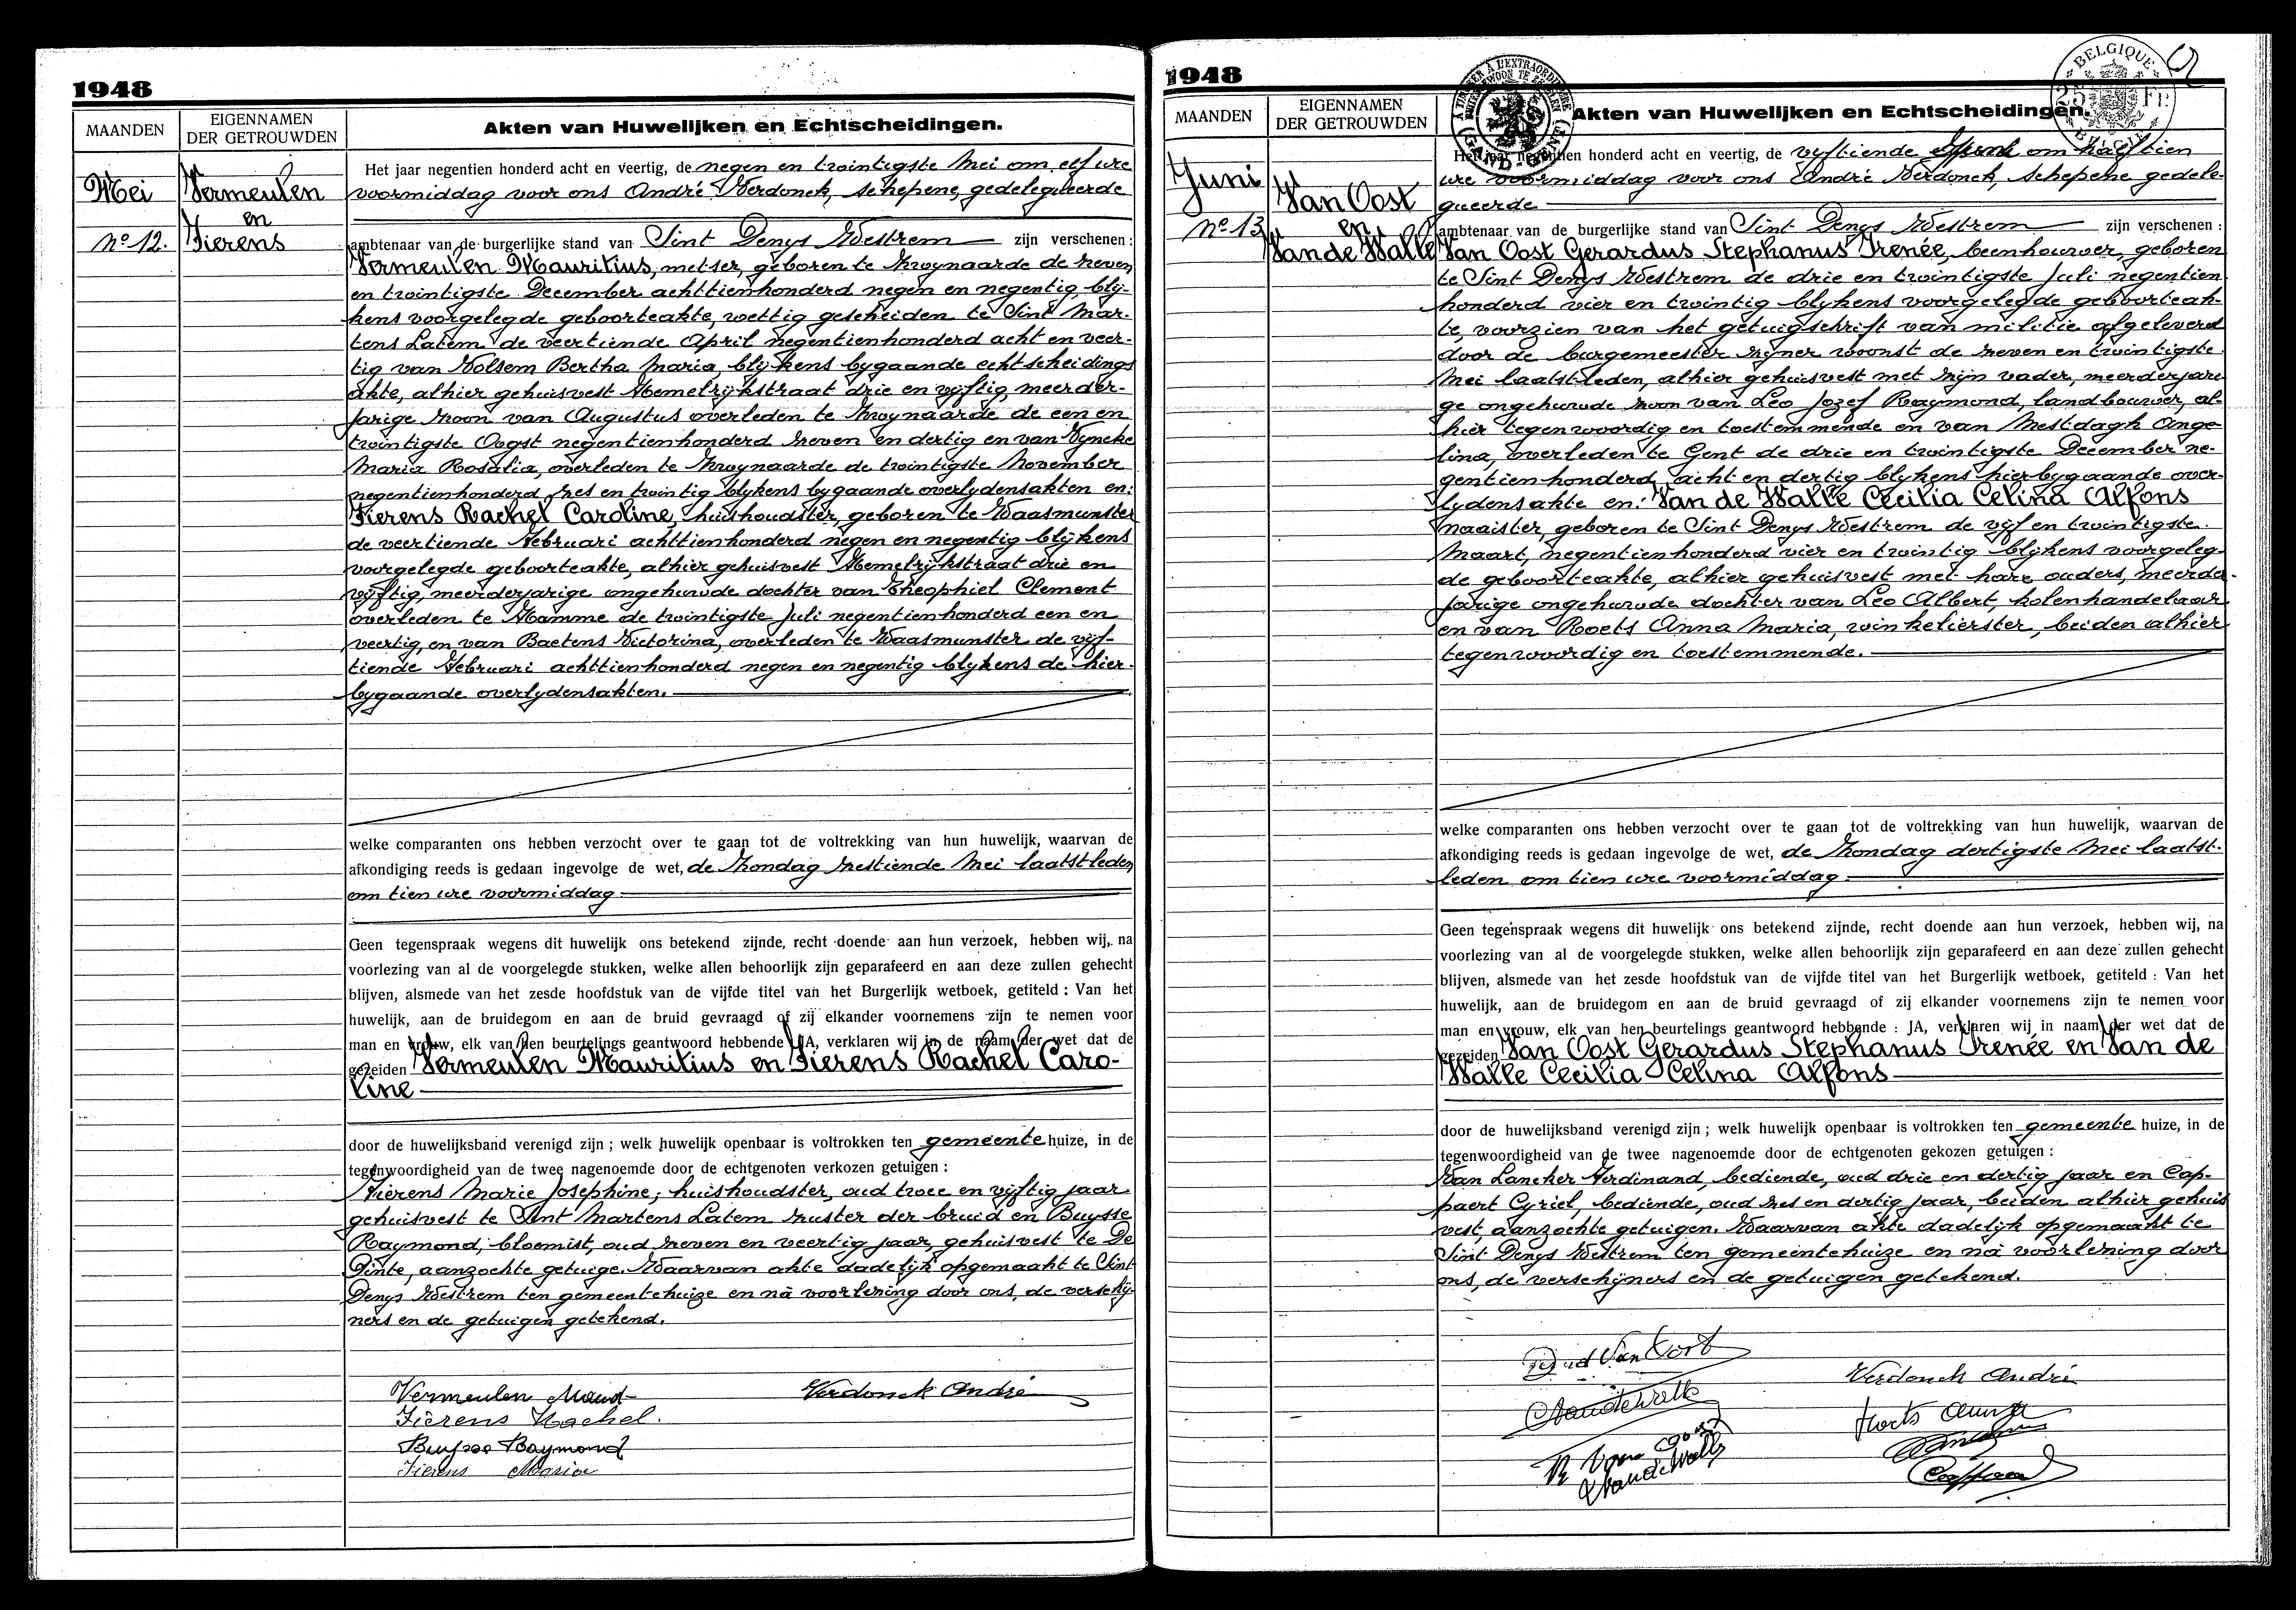 1948
MAANDEN
EIGENNAMEN
DER GETROUWDEN
Akten van Huwelijken en Echtscheidingen.
Mei
Nº 12.
Vermeulen
en
Fierens
Het jaar negentien honderd acht en veertig, de negen en twintigste Mei om elf ure
voormiddag voor ons André Verdonck, schepene, gedelegueerde
ambtenaar van de burgerlijke stand van Sint Denys Westrem zijn verschenen :
Vermeulen Mauritius, metser, geboren te Zwynaarde de zeven
en twintigste December achttienhonderd negen en negentig, bly-
kens voorgelegde geboorteakte, wettig gescheiden te Sint Mar-
tens Latem de veertiende April negentienhonderd acht en veer-
tig van Wolsem Bertha Maria, blijkens bygaande echtscheidings
akte, alhier gehuisvest Hemelrijkstraat drie en vyftig, meerder-
jarige zoon van Augustus overleden te Zwynaarde de een en
twintigste Oogst negentienhonderd zeven en dertig en van Vyncke
Maria Rosalia, overleden te Zwynaarde de twintigste November
negentienhonderd zes en twintig blykens bygaande overlydensakten en:
Fierens Rachel Caroline, huishoudster, geboren te Waasmunster
de veertiende Februari achttienhonderd negen en negentig blijkens
voorgelegde geboorteakte, alhier gehuisvest Hemelrijkstraat drie en
vyftig, meerderjarige ongehuwde dochter van Theophiel Clement
overleden te Hamme de twintigste Juli negentienhonderd een en
veertig, en van Baetens Victorina, overleden te Waasmunster de vijf-
tiende Februari achttienhonderd negen en negentig blykens de hier-
bygaande overlydensakten.
welke comparanten ons hebben verzocht over te gaan tot de voltrekking van hun huwelijk, waarvan de
afkondiging reeds is gedaan ingevolge de wet, de Zondag zestiende Mei laatstleden
om tien ure voormiddag
Geen tegenspraak wegens dit huwelijk ons betekend zijnde, recht doende aan hun verzoek, hebben wij, na
voorlezing van al de voorgelegde stukken, welke allen behoorlijk zijn geparafeerd en aan deze zullen gehecht
blijven, alsmede van het zesde hoofdstuk van de vijfde titel van het Burgerlijk wetboek, getiteld : Van het
huwelijk, aan de bruidegom en aan de bruid gevraagd of zij elkander voornemens zijn te nemen voor
man en vrouw, elk van hen beurtelings geantwoord hebbende : JA, verklaren wij in de naam der wet dat de
gezeiden Vermeulen Mauritius en Fierens Rachel Caro-
line
door de huwelijksband verenigd zijn ; welk huwelijk openbaar is voltrokken ten gemeente huize, in de
tegenwoordigheid van de twee nagenoemde door de echtgenoten verkozen getuigen :
Fierens Marie Josephine, huishoudster, oud twee en vijftig jaar
gehuisvest te Sint Martens Latem zuster der bruid en Buysse
Raymond, bloemist, oud zeven en veertig jaar, gehuisvest te De
Pinte, aanzochte getuige. Waarvan akte dadelijk opgemaakt te Sint
Denys Westrem ten gemeentehuize en nà voorlezing door ons, de verschij-
ners en de getuigen getekend.
Vermeulen Maud
Verdonck André
Fierens Rachel.
Buysse Raymond
Fierens Maria
1948
MAANDEN
EIGENNAMEN
DER GETROUWDEN
Akten van Huwelijken en Echtscheidingen.
BELGIQUE
25 FR
BELGIË
GAND-GENT
Juni
Nº 13
Van Oost
en
Van de Walle
Het jaar negentien honderd acht en veertig, de vyftiende om half tien
ure voormiddag voor ons André Verdonck, schepene gedele-
gueerde
ambtenaar van de burgerlijke stand van Sint Denys Westrem zijn verschenen :
Van Oost Gerardus Stephanus Irenée, beenhouwer, geboren
te Sint Denys Westrem de drie en twintigste Juli negentien
honderd vier en twintig blykens voorgelegde geboorteak-
te, voorzien van het getuigschrift van militie afgeleverd
door de burgemeester zyner woonst de zeven en twintigste
Mei laatstleden, alhier gehuisvest met zijn vader, meerderjari
ge ongehuwde zoon van Leo Jozef Raymond, landbouwer, al-
hier tegenwoordig en toestemmende en van Mestdagh Ange-
lina, overleden te Gent de drie en twintigste December ne-
gentienhonderd acht en dertig blykens hierbygaande over-
lydensakte en: Van de Walle Cecilia Celina Alfons
naaister, geboren te Sint Denys Westrem de vijf en twintigste
Maart, negentienhonderd vier en twintig blijkens voorgeleg-
de geboorteakte, alhier gehuisvest met hare ouders, meerder-
jarige ongehuwde dochter van Leo Albert, kolenhandelaar
en van Roets Anna Maria, winkelierster, beiden alhier
tegenwoordig en toestemmende.
welke comparanten ons hebben verzocht over te gaan tot de voltrekking van hun huwelijk, waarvan de
afkondiging reeds is gedaan ingevolge de wet, de Zondag dertigste Mei laatst-
leden om tien ure voormiddag
Geen tegenspraak wegens dit huwelijk ons betekend zijnde, recht doende aan hun verzoek, hebben wij, na
voorlezing van al de voorgelegde stukken, welke allen behoorlijk zijn geparafeerd en aan deze zullen gehecht
blijven, alsmede van het zesde hoofdstuk van de vijfde titel van het Burgerlijk wetboek, getiteld : Van het
huwelijk, aan de bruidegom en aan de bruid gevraagd of zij elkander voornemens zijn te nemen voor
man en vrouw, elk van hen beurtelings geantwoord hebbende : JA, verklaren wij in naam der wet dat de
gezeiden Van Oost Gerardus Stephanus Irenée en Van de
Walle Cecilia Celina Alfons
door de huwelijksband verenigd zijn ; welk huwelijk openbaar is voltrokken ten gemeente huize, in de
tegenwoordigheid van de twee nagenoemde door de echtgenoten gekozen getuigen :
Van Lancker Ferdinand, bediende, oud drie en dertig jaar en Cap-
paert Cyriel, bediende, oud zes en dertig jaar, beiden alhier gehuis
vest, aanzochte getuigen. Waarvan akte dadelijk opgemaakt te
Sint Denys Westrem ten gemeentehuize en nà voorlezing door
ons, de verschijners en de getuigen getekend.
Van Oost
Verdonck André
C Van de Walle
Roets Anna
R Van Oost
Van de Walle
Cappaert